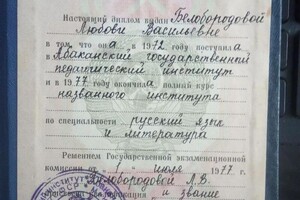 Настоящий диплом выдан Белобородовой
Любови Васильевне
в том, что она в 1972 году поступила
в Абаканский государственный
педагогический институт
и в 1977 году окончила полный курс
названного института
по специальности русский язык
и литература
Решением Государственной экзаменационной
комиссии от "1" июля 1977 г.
Белобородовой Л.В.
и звание